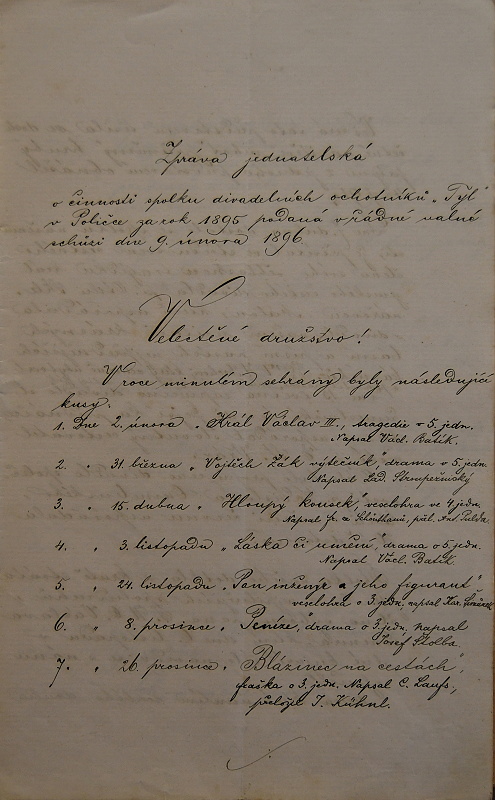 Zpráva jednatelská
o činnosti spolku divadelních ochotníků „Tyl“
v Poličce za rok 1895 podaná v řádné valné
schůzi dne 9. února 1896.
Velectěné družstvo!
V roce minulém sehrány byly následující
kusy:
1. Dne 2. února „Král Václav III., tragedie o 5. jedn.
Napsal Václ.
2. „ 31. března „Vojtěch Žák výtečník“, drama o 5. jedn.
Napsal Lad. Stroupežnický
3. „ 15. dubna „Hloupý kousek“, veselohra ve 4 jedn.
Napsal Fr. z Schönthanů, přel. Ant.
4. „ 3. listopadu „Láska či umění“, drama o 5. jedn.
Napsal Václ.
5. „ 24. listopadu „Pan inženýr a jeho figurant“
veselohra o 3. jedn. napsal Kar.
6. „ 8. prosince „Peníze, drama o 3. jedn. napsal
Josef Štolba.
7. „ 26. prosince „Blázinec na cestách“,
fraška o 3. jedn. Napsal C. Laufs,
přeložil J. Kühnl.